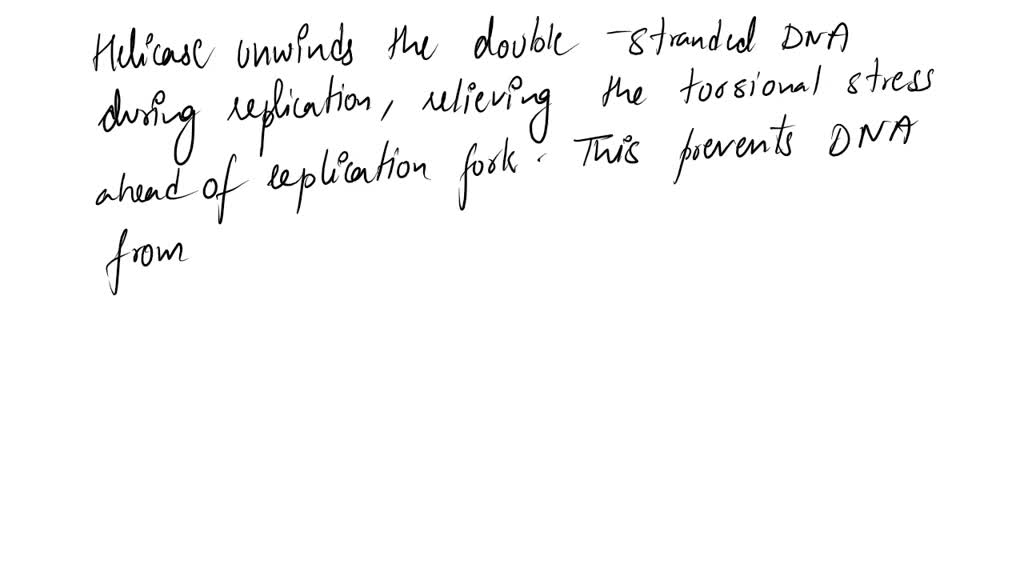 Helicase unwinds the double-stranded DNA
during replication, relieving the torsional stress
ahead of replication fork. This prevents DNA
from